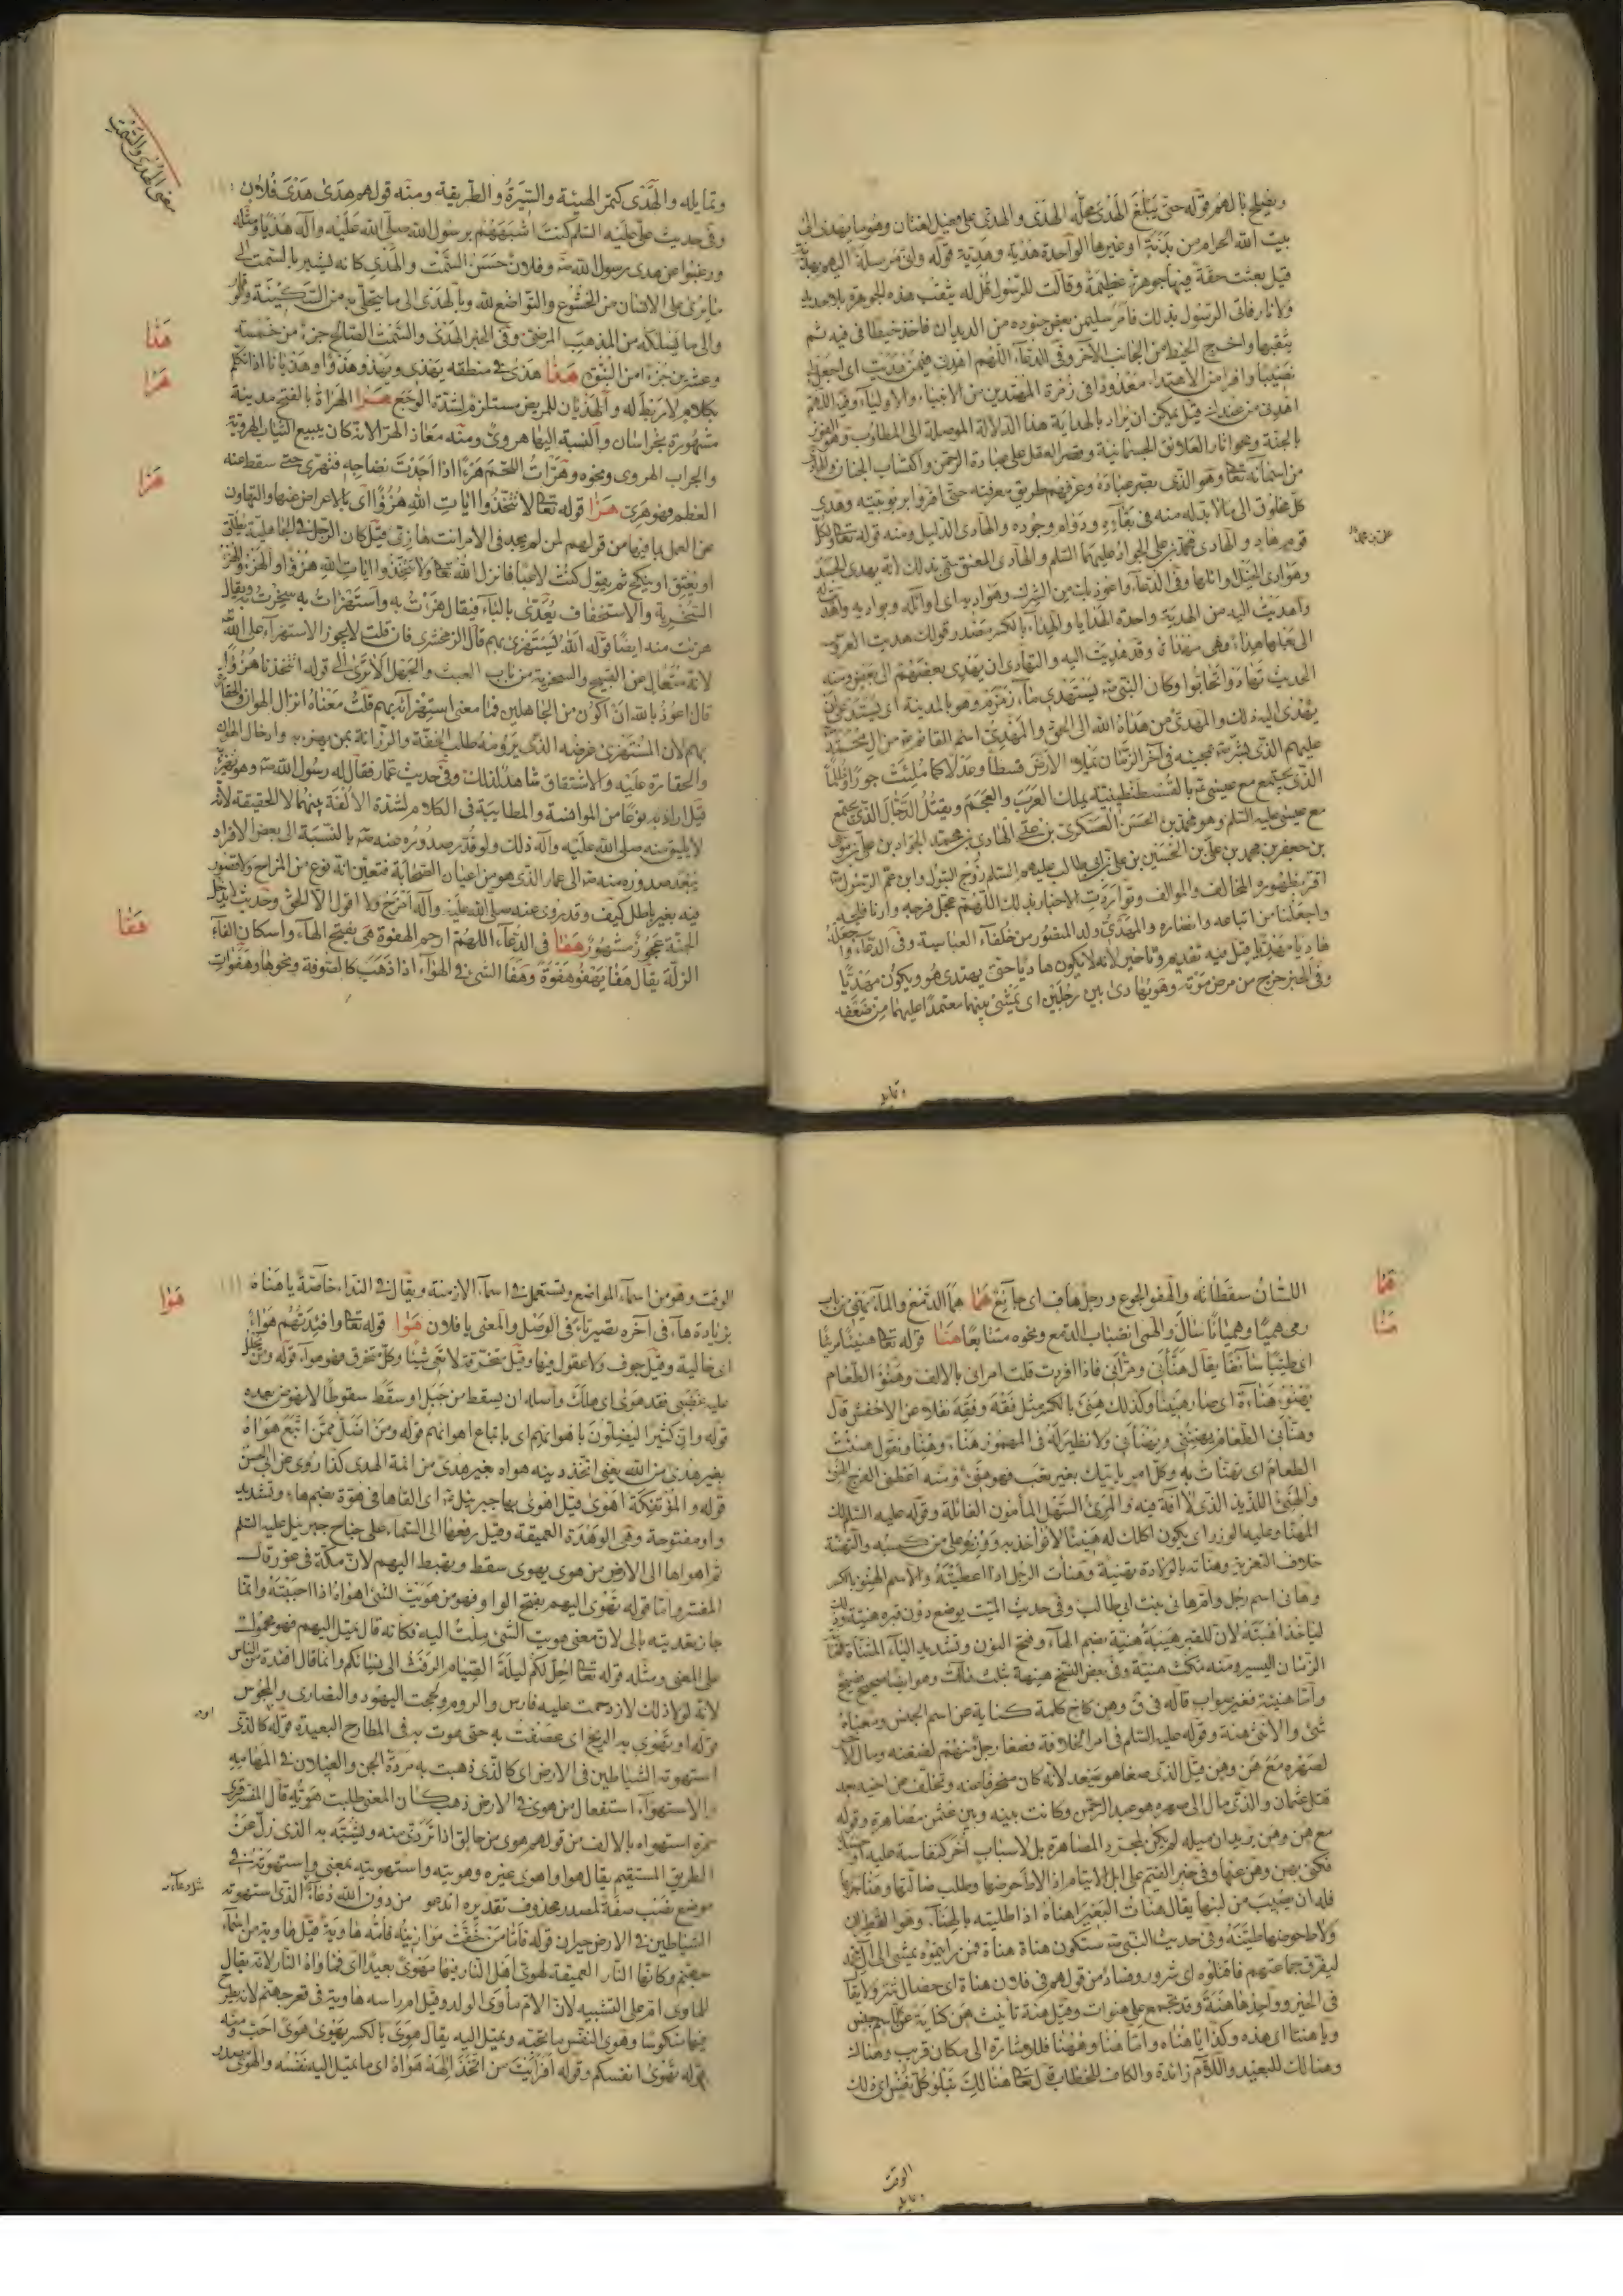 ويصلح بالهم قوله حتى يبلغ الهدى محله الهدى والهدى على فعيل لغتان وهو ما يهدى الى
بيت الله الحرام من بدنة او غيرها الواحدة هدية وهدية قوله وانى مرسلة اليهم بهدية
قيل بعثت حقة فيها جوهرة عظيمة وقالت للرسول قل له يثقب هذه الجوهرة بلا حديد
ولا نار فاتى الرسول بذلك فامر سليمن بعض جنوده من الديدان فاخذ خيطا فى فيه ثم
يثقبها واخرج الخيط من الجانب الآخر وفى الدعاء اللهم اهدنى فيمن هديت اى اجعل لى
نصيبا وافرا من الاهتداء معدودا فى زمرة المهتدين من الانبياء والاولياء وفيه اللهم
اهدنى من عندك قيل يمكن ان يراد بالهداية هنا الدلالة الموصلة الى المطلوب وهو الفوز
بالجنة ومحو اثار العلائق الجسمانية وقصر العقل على عبادة الرحمن واكتساب الجنان والهادى
من اسمائه تعالى وهو الذى بصر عباده وعرفهم طريق معرفته حتى اقروا بربوبيته وهدى
كل مخلوق الى ما لا بد له منه فى بقاؤه ودوام وجوده والهادى الدليل ومنه قوله تعالى ولكل
قوم هاد والهادى محمد بن على الجواد عليهما السلم والهادى العنق سمى بذلك لانه يهدى الجسد
وهوادى الخيل اوائلها وفى الدعاء واعوذ بك من الشرك وهواديه اى اوائله وبواديه واهديت له
واهديت اليه من الهدية واحدة الهدايا والهداء بالكسر مصدر قولك هديت العروس
الى بعلها هداء وهى مهداة وقد هديت اليه والتهادى ان يهدى بعضهم الى بعض ومنه
الحديث تهادوا تحابوا وكان النبى ص يستهدى ماء زمزم وهو بالمدينة اى يستدعى ان
يهدى اليه ذلك والمهدى من هداه الله الى الحق والمهدى اسم القائم من ال محمد
عليهم الذى بشر بمجيئه فى آخر الزمان يملاء الارض قسطا وعدلا كما ملئت جورا وظلما
الذى يجتمع مع عيسى ع بالقسطنطينية يملك العرب والعجم ويقتل الدجال الذى يجتمع
مع عيسى عليه السلم وهو محمد بن الحسن العسكرى بن على الهادى بن محمد الجواد بن على بن موسى
بن جعفر بن محمد بن على بن الحسين بن على بن ابى طالب عليهم السلم زوج البتول وابن عم الرسول
اقر بظهوره المخالف والموالف وتواردت الاخبار بذلك اللهم عجل فرجه وارنا فلجه
واجعلنا من اتباعه وانصاره والمهدى ولد المنصور من خلفاء العباسية وفى الدعاء واجعله
هاديا مهديا قيل فيه تقديم وتاخير لانه لا يكون هاديا حتى يهتدى هو ويكون مهديا
وفى الخبر خرج من مرض موته وهو يهادى بين رجلين اى يمشى بينهما معتمدا عليهما من ضعفه
وتمايله
وتمايله والهدى كتمر الهيئة والسيرة والطريقة ومنه قولهم هدى هدى فلان
وفى حديث على عليه السلم كنت اشبههم برسول الله صلى الله عليه وآله هديا ومثله
ورغبوا عن هدى رسول الله ص وفلان حسن السمت والهدى كانه يشير بالسمت الى
ما يرى على الانسان من الخشوع والتواضع لله وبالهدى الى ما يتحلى به من السكينة والوقار
والى ما يسلكه من المذهب المرضى وفى الخبر الهدى والسمت الصالح جزء من خمسة
وعشرين جزءا من النبوة هذا هذى فى منطقه يهذى ويهذو هذوا وهذيانا اذا تكلم
بكلام لا ربط له والهذيان للمريض مستلزم لشدة الوجع هرا الهراة بالفتح مدينة
مشهورة بخراسان والنسبة اليها هروى ومنه معاذ الهرا لانه كان يبيع الثياب الهروية
والجراب الهروى ونحوه وهرات اللحم هرءا اذا اجدت نضاجه فتهرى حتى سقط عنه
العظم فهو هرى هزا قوله تعالى لا تتخذوا ايات الله هزوا اى بالاعراض عنها والتهاون
عن العمل بما فيها من قولهم لمن لم يجد فى الامر انت هازئ قيل كان الرجل فى الجاهلية يطلق
او يعتق او ينكح ثم يقول كنت لاعبا فانزل الله تعالى ولا تتخذوا ايات الله هزوا والهزو الهزء
السخرية والاستخفاف يعدى بالباء فيقال هزئت به واستهزات به سخرت به ويقال
هزئت منه ايضا قوله الله يستهزئ بهم قال الزمخشرى فان قلت لا يجوز الاستهزاء على الله
لانه متعال عن القبيح والسخرية من باب العبث والجهل الا ترى الى قوله اتتخذنا هزوا
قال اعوذ بالله ان اكون من الجاهلين فما معنى استهزائه بهم قلت معناه انزال الهوان والحقارة
بهم لان المستهزئ غرضه الذى يرومه طلب الخفة والزرانة بمن يهزء به وادخال الهوان
والحقارة عليه والاشتقاق شاهد لذلك وفى حديث عمار فقال له رسول الله ص وهو يهزئ
قيل اراد به نوعا من الموانسة والمطايبة فى الكلام لشدة الالفة بينهما لا الحقيقة لانه
لا يليق منه صلى الله عليه وآله ذلك ولو قدر صدوره عنه ص بالنسبة الى بعض الافراد
يبعد صدوره منه ص الى عمار الذى هو من اعيان الصحابة فتعين انه نوع من المزاح ولا قصور
فيه بغير باطل كيف وقد روى عنه صلى الله عليه وآله امزح ولا اقول الا الحق وحديث لا يدخل
الجنة عجوز مشهور هفا فى الدعاء اللهم ارحم الهفوة هى بفتح الهاء واسكان الفاء
الزلة يقال هفا يهفو هفوة وهفا الشئ فى الهواء اذا ذهب كالصوفة ونحوها وهفوات
معنى الهدى والسمت
هذا
هرا
هزا
هفا
اللسان سقطاته والهفو الجوع ورجل هاف اى جائع هما هما الدمع والماء يهمى من باب
رمى هميا وهميانا سال والهمى انصباب الدمع ونحوه متتابعا هنا قوله تعالى هنيئا مريئا
اى طيبا سائغا يقال هنأنى ومرأنى فاذا افردت قلت امرانى بالالف وهنؤ الطعام
يهنؤ هناءة اى صار هنيئا وكذلك هنئ بالكسر مثل فقه وفقه نقلا عن الاخفش قال
وهنأنى الطعام يهنئنى ويهنأنى ولا نظير له فى المهموز هناء وهنا ونقول هنئت
الطعام اى تهنات به وكل امر ياتيك بغير تعب فهو هنئ
والهنئ اللذيذ الذى لا آفة فيه والمرئ السهل المأمون الغائلة وقوله عليه السلم لك
المهنا وعليه الوزر اى يكون اكلك له هنيئا لا تؤاخذ به ووزره على من كسبه والتهنئة
خلاف التعزية وهناته بالولادة تهنئة وهنات الرجل اذا اعطيته والاسم الهنؤ بالكسر
وهانى اسم رجل وام هانى بنت ابى طالب وفى حديث الميت يوضع دون قبره هنيئة وذلك
لياخذ اهبته لان للقبر هيبة هنية بضم الهاء وفتح النون وتشديد الياء المثناة
الزمان اليسير ومنه مكث هنية وفى بعض النسخ هنيهة بثلث هاآت وهو ايضا صحيح فصيح
واما هنيئة فغير صواب قاله فى ق وهن كاخ كلمة كناية عن اسم الجنس ومعناه
شئ والانثى هنة وقوله عليه السلم فى امر الخلافة فصغا رجل منهم لضغنه ومال الاخر
لصهره مع هن وهن قيل الذى صغا هو سعد لانه كان منحرفا عنه وتخلف عن بعد
قتل عثمان والذى مال الى صهره هو عبد الرحمن وكانت بينه وبين عثمن مصاهرة وقوله
مع هن وهن يريد ان ميله لم يكن لمجرد المصاهرة بل لاسباب اخر كنفاسة عليه
فكنى بهن وهن عنها وفى خبر القيم على ابل الايتام اذا لاط حوضها وطلب ضالتها وهنأ جرباها
فله ان يصيب من لبنها يقال هنات البعير اهناه اذا طليته بالهناء وهو القطران
ولاط حوضها طينه وفى حديث النبى ص ستكون هناة هناة فمن رايتموه يمشى الى آل محمد
ليفرق جماعتهم فاقتلوه اى شرور وفساد من قولهم فى فلان هناة اى خصال شر ولا يقال
فى الخير وواحدها هنة وقد تجمع على هنوات وقيل هنة تانيث هن كناية عن كل اسم جنس
ويا هنتا اى هذه وكذا يا هناه واما هنا وههنا فللاشارة الى مكان قريب وهناك
وهنالك للبعيد واللام زائدة والكاف للخطاب قال تعالى هنالك تبلو كل نفس اى فى ذلك
الوقت
هما
هنا
الوقت وهو من اسماء المواضع وتستعمل فى اسماء الازمنة ويقال فى النداء خاصة يا هناه
بزيادة هاء فى آخره تصير تاء فى الوصل والمعنى يا فلان هوا قوله تعالى وافئدتهم هواء
اى خالية وقيل جوف ولا عقول فيها وقيل متخرقة لا تعى شيئا وكل متخرق فهو هواء قوله ومن يحلل
عليه غضبى فقد هوى اى هلك واصله ان يسقط من جبل او سقط سقوطا لا نهوض بعده
قوله وان كثيرا ليضلون باهوائهم اى باتباع اهوائهم قوله ومن اضل ممن اتبع هواه
بغير هدى من الله يعنى اتخذ دينه هواه بغير هدى من ائمة الهدى كذا روى عن ابى الحسن
قوله والمؤتفكة اهوى قيل اهوى بها جبرئيل ع اى القاها فى هوة بضم هاء وتشديد
واو مفتوحة وهى الوهدة العميقة وقيل رفعها الى السماء على جناح جبرئيل عليه السلم
ثم اهواها الى الارض من هوى يهوى سقط ويهبط اليهم لان مكة فى غور قال
المفسر واما قوله تهوى اليهم بفتح الواو فهو من هويت الشئ اهواه اذا احببته وانما
جاز تعديته بالى لان معنى هويت الشئ ملت اليه فكانه قال تميل اليهم فهو محمول
على المعنى ومثله قوله تعالى احل لكم ليلة الصيام الرفث الى نسائكم وانما قال افئدة من الناس
لانه لولا ذلك لازدحمت عليه فارس والروم وحجت اليهود والنصارى والمجوس
قوله او تهوى به الريح اى عصفت به حتى هوت به فى المطارح البعيدة قوله كالذى
استهوته الشياطين فى الارض اى كالذى ذهبت به مردة الجن والغيلان فى المهامه
والاستهواء استفعال من هوى فى الارض ذهب كان المعنى طلبت هويه قال المفسر قرئ
حمزة استهواه بالالف من قولهم هوى من حالق اذا تردى منه ويشبه به الذى زل عن
الطريق المستقيم يقال هوا واهوى غيره وهويته واستهويته بمعنى واستهوته فى
موضع نصب صفة لمصدر محذوف تقديره اندعو من دون الله دعاء الذى استهوته
الشياطين فى الارض حيران قوله فاما من خفت موازينه فامه هاوية قيل هاوية من اسماء
جهنم وكانها النار العميقة لهوى اهل النار فيها مهوى بعيدا اى فماواه النار لانه يقال
للماوى ام على التشبيه لان الام مأوى الولد وقيل ام راسه هاوية فى قعر جهنم لانه يطرح
فيها منكوسا وهوى النفس ما تحبه وتميل اليه يقال هوى بالكسر يهوى هوى احب ومنه
قوله تهوى انفسكم وقوله افرايت من اتخذ الهه هواه اى ما تميل اليه نفسه والهوى مصدر
هوا